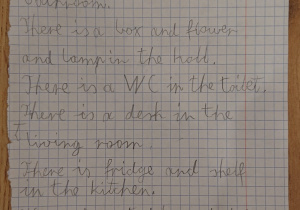 bathroom.
There is a box and flower
and lamp in the hall.
There is a WC in the toilet.
There is a desk in the
living room.
There is fridge and shelf
in the kitchen.